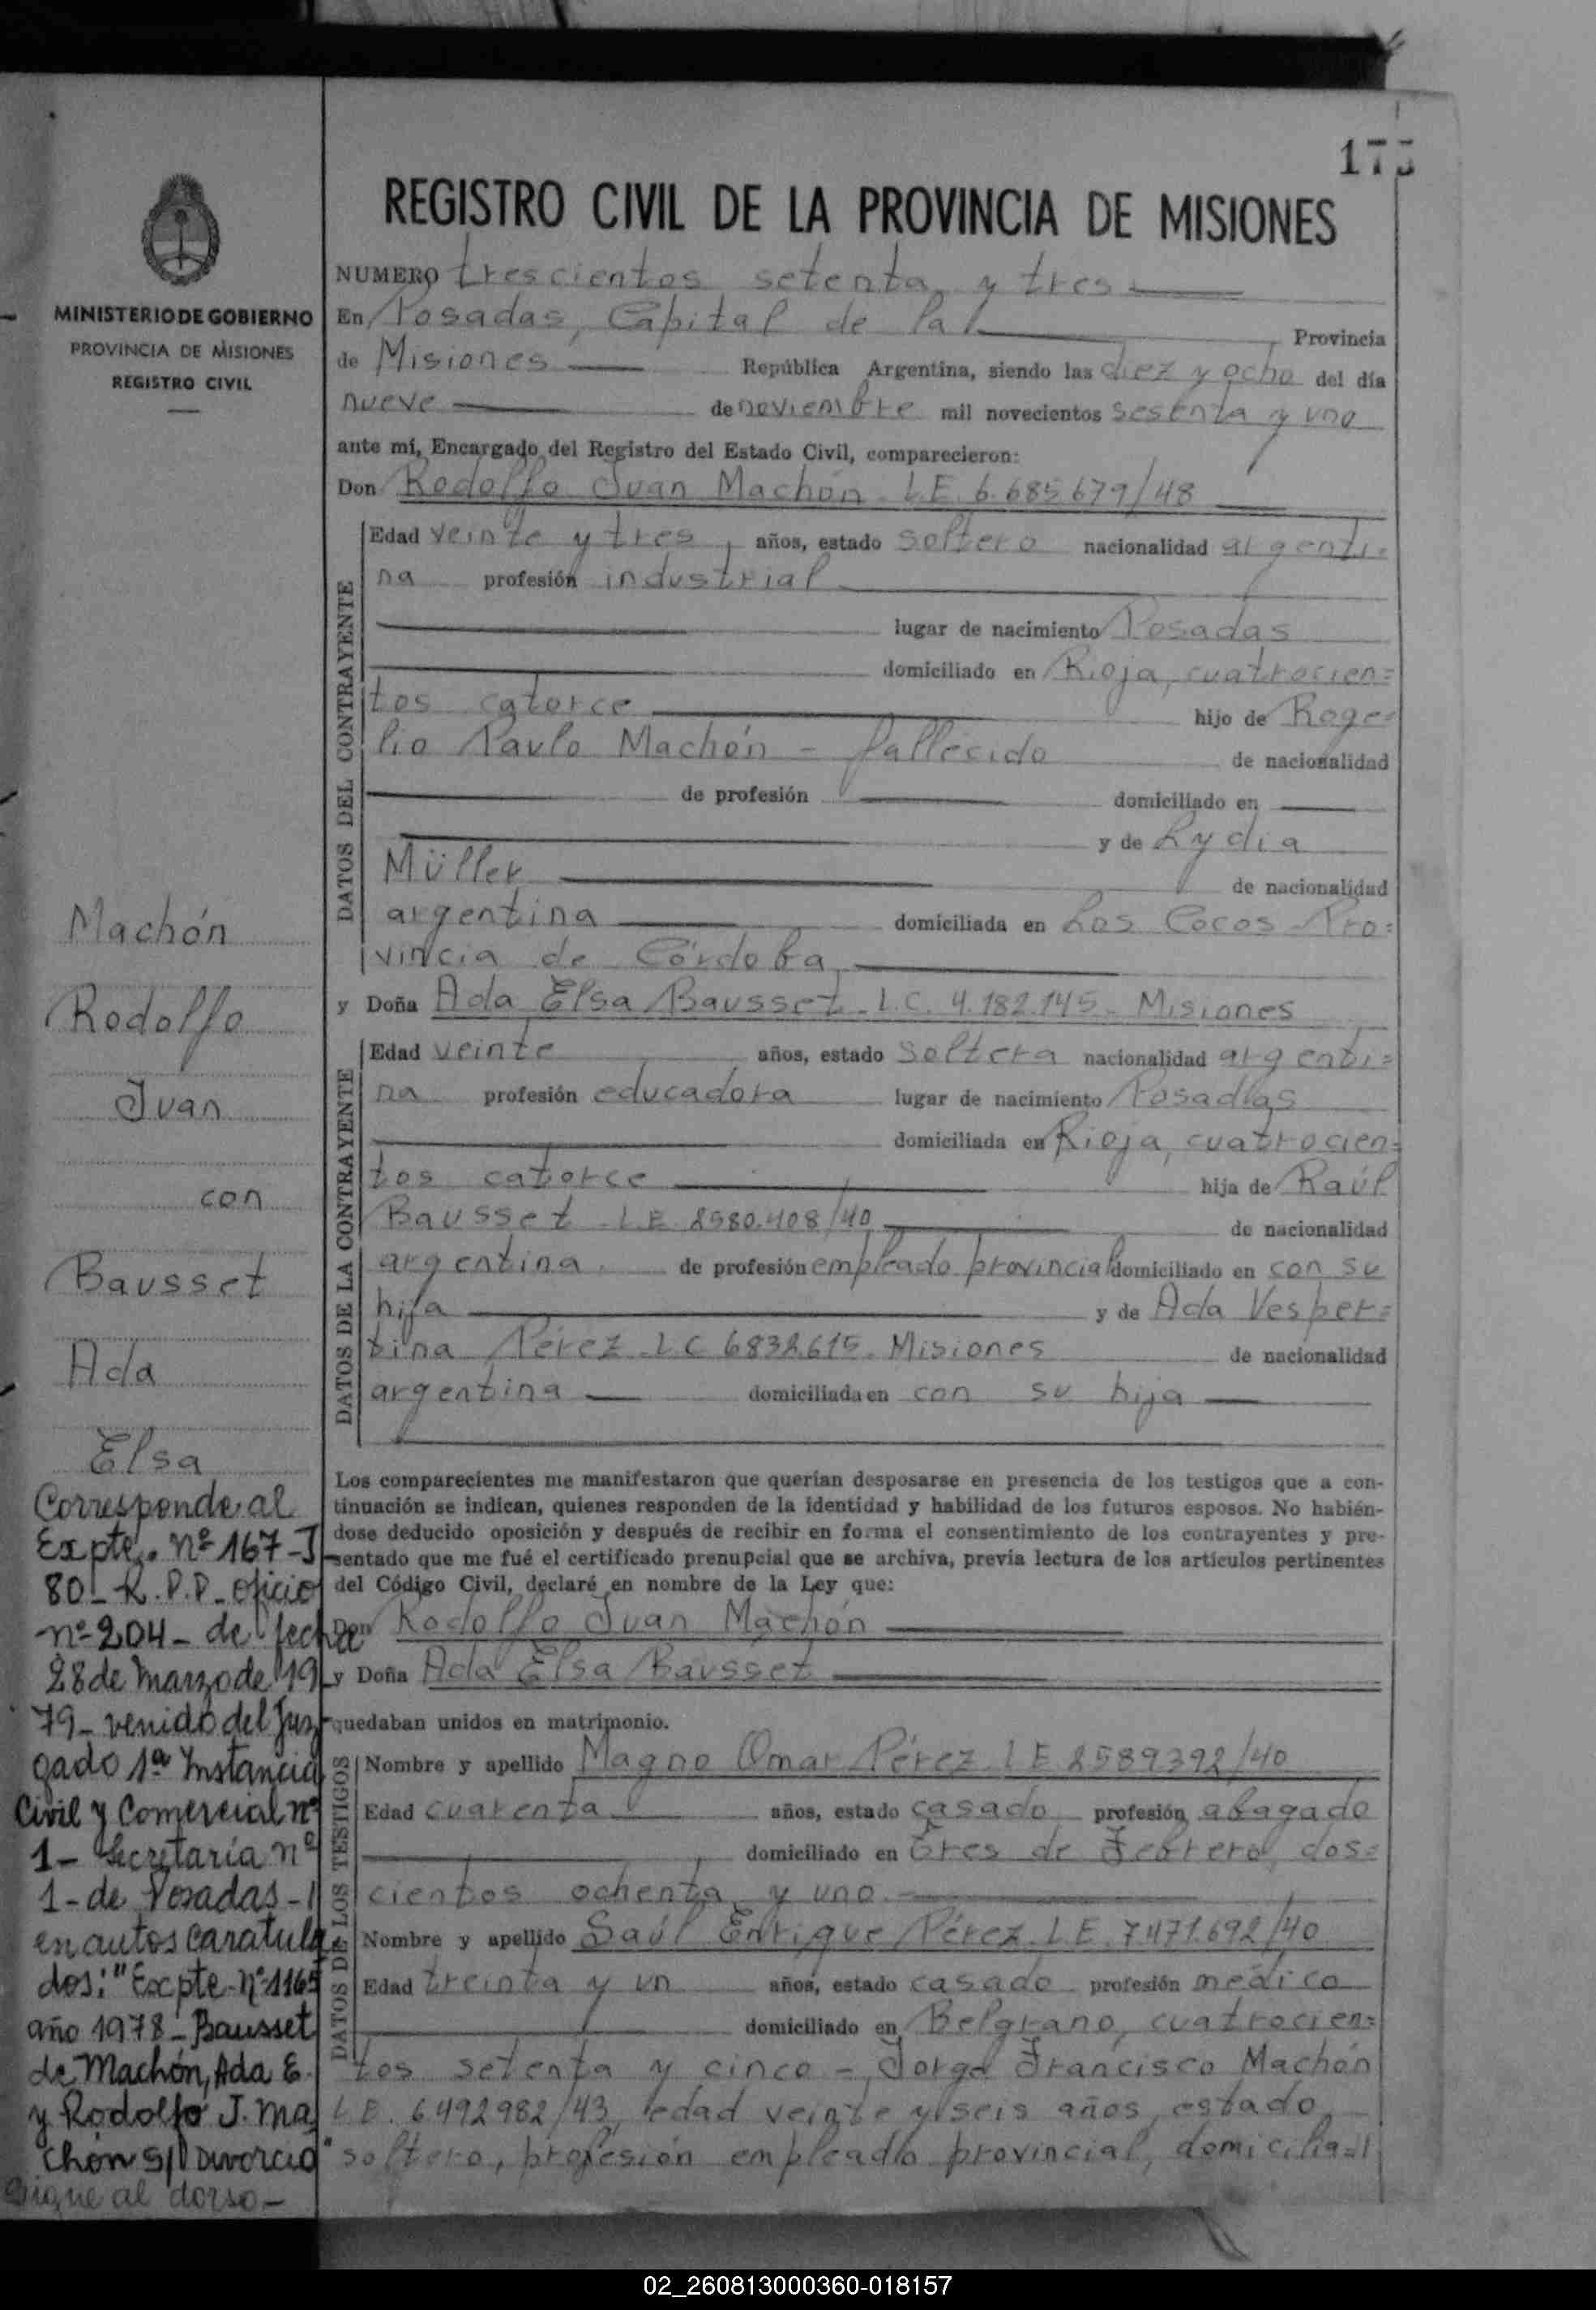 175
REGISTRO CIVIL DE LA PROVINCIA DE MISIONES
MINISTERIO DE GOBIERNO
PROVINCIA DE MISIONES
REGISTRO CIVIL
NUMERO trescientos setenta y tres
En Posadas, Capital de la Provincia
de Misiones República Argentina, siendo las diez y ocho del día
nueve de noviembre mil novecientos sesenta y uno
ante mí, Encargado del Registro del Estado Civil, comparecieron:
Don Rodolfo Juan Machón - L.E. 6.685679/48
DATOS DEL CONTRAYENTE
Edad veinte y tres, años, estado soltero nacionalidad argenti=
na profesión industrial
lugar de nacimiento Posadas
domiciliado en Rioja, cuatrocien=
tos catorce hijo de Roge=
lio Paulo Machón - fallecido de nacionalidad
de profesión domiciliado en
y de Lydia
Müller de nacionalidad
argentina domiciliada en Los Cocos - Pro=
vincia de Córdoba
y Doña Ada Elsa Bausset - L.C. 4.182.145 - Misiones
DATOS DE LA CONTRAYENTE
Edad veinte años, estado soltera nacionalidad argenti=
na profesión educadora lugar de nacimiento Posadas
domiciliada en Rioja, cuatrocien=
tos catorce hija de Raúl
Bausset - L.E. 2580.408/40 de nacionalidad
argentina de profesión empleado provincial domiciliado en con su
hija y de Ada Vesper=
tina Pérez - L.C 6832615 - Misiones de nacionalidad
argentina domiciliada en con su hija
Los comparecientes me manifestaron que querían desposarse en presencia de los testigos que a con-
tinuación se indican, quienes responden de la identidad y habilidad de los futuros esposos. No habién-
dose deducido oposición y después de recibir en forma el consentimiento de los contrayentes y pre-
sentado que me fué el certificado prenupcial que se archiva, previa lectura de los artículos pertinentes
del Código Civil, declaré en nombre de la Ley que:
Don Rodolfo Juan Machón
y Doña Ada Elsa Bausset
quedaban unidos en matrimonio.
DATOS DE LOS TESTIGOS
Nombre y apellido Magno Omar Pérez L E 2589392/40
Edad cuarenta años, estado casado profesión abogado
domiciliado en tres de Febrero, dos=
cientos ochenta y uno.-
Nombre y apellido Saúl Enrique Pérez - L.E. 7.471.692/40
Edad treinta y un años, estado casado profesión médico
domiciliado en Belgrano, cuatrocien=
tos setenta y cinco - Jorge Francisco Machón
L E. 6492982/43, edad veinte y seis años, estado
soltero, profesión empleado provincial, domicilia=
Machón
Rodolfo
Juan
con
Bausset
Ada
Elsa
Corresponde al
Expte. nº 167-J
80 - R.P.P. oficio
nº 204 - de fecha
28 de Marzo de 19
79 - venido del Juz
gado 1ª Instancia
Civil y Comercial nº
1 - Secretaría nº
1 - de Posadas -
en autos caratula
dos: "Expte - Nº 1165
año 1978 - Bausset
de Machón, Ada E.
y Rodolfo J. Ma
chón s/ Divorcio"
Sigue al dorso -
02_260813000360-018157